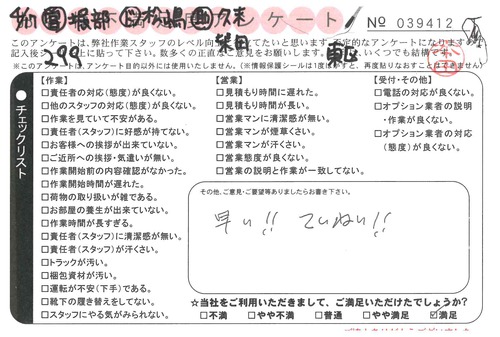 ケート
No 039412
このアンケートは、弊社作業スタッフのレベル向
記入後
※このアンケートは、アンケート目的以外には使用いたしません。(※情報保護シールは1度はがすと、再度貼りなおすことはできません
299
東区
チェックリスト
【作業】
□責任者の対応(態度)が良くない。
□他のスタッフの対応(態度)が良くない。
□作業を見ていて不安がある。
□責任者(スタッフ)に好感が持てない。
□お客様への挨拶が出来ていない。
□ご近所への挨拶・気遣いが無い。
□作業開始前の内容確認がなかった。
□作業開始時間が遅れた。
□荷物の取り扱いが雑である。
□お部屋の養生が出来ていない。
□作業時間が長すぎる。
□責任者(スタッフ)に清潔感が無い。
□責任者(スタッフ)が汗くさい。
□トラックが汚い。
□梱包資材が汚い。
□運転が不安(下手)である。
□靴下の履き替えをしてない。
□スタッフにやる気がみられない。
【営業】
□見積もり時間に遅れた。
□見積もり時間が長い。
□営業マンに清潔感が無い。
□営業マンが煙草くさい。
□営業マンが汗くさい。
□営業態度が良くない。
□営業の説明と作業が一致してない。
【受付・その他】
□電話の対応が良くない。
□オプション業者の説明
・作業が良くない。
□オプション業者の対応
(態度)が良くない。
その他、ご意見・ご要望等ありましたらお書き下さい。
早い!! ていねい!!
☆当社をご利用いただきまして、ご満足いただけたでしょうか?
□不満 □やや不満 □普通 □やや満足 ☑満足